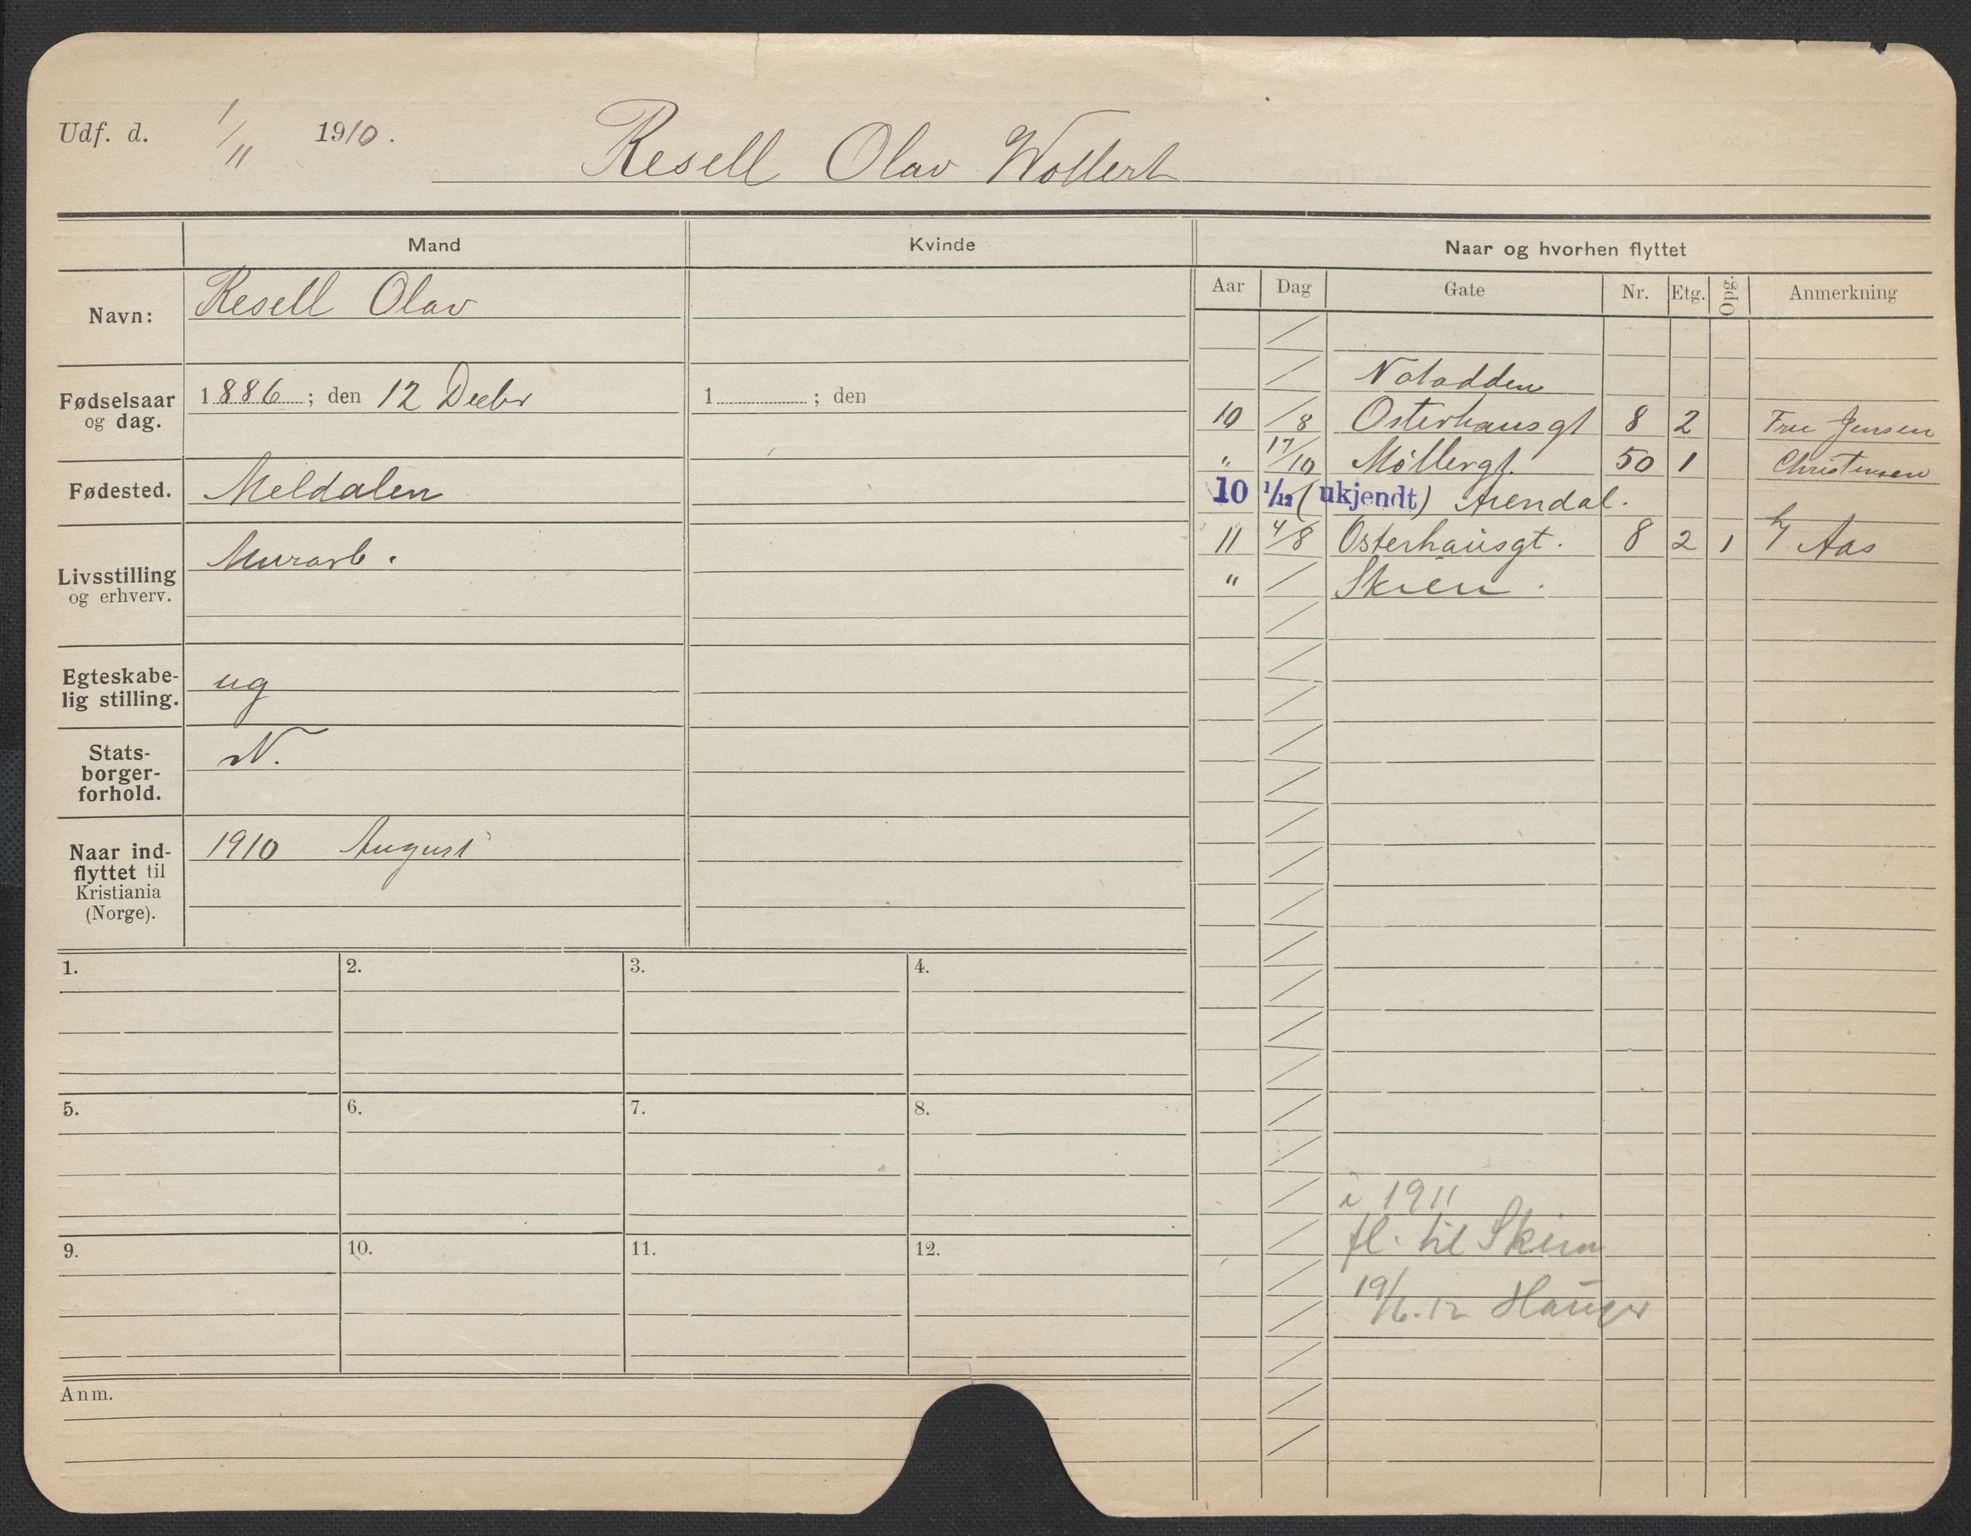 Udf. d. 1/11 1910. Resell Olav Wollert
Mand Kvinde Naar og hvorhen flyttet
Aar Dag Gate Nr. Etg. Opg. Anmerkning
Navn: Resell Olav
Fødselsaar og dag. 1886; den 12 Decbr 1 ; den
Fødested. Meldalen
Livsstilling og erhverv. Murarb.
Egteskabe-
lig stilling. ug
Stats-
borger-
forhold. N.
Naar ind-
flyttet til
Kristiania
(Norge). 1910 August
Notodden
10 /8 Osterhausgt 8 2 Fru Jensen
" 17/10 Møllergt. 50 1 Christensen
10 1/12 (ukjendt) Arendal.
11 4/8 Osterhausgt. 8 2 1 h/ Aas
" Skien.
i 1911
fl. til Skien
19/6.12 Hauger
1. 2. 3. 4.
5. 6. 7. 8.
9. 10. 11. 12.
Anm.